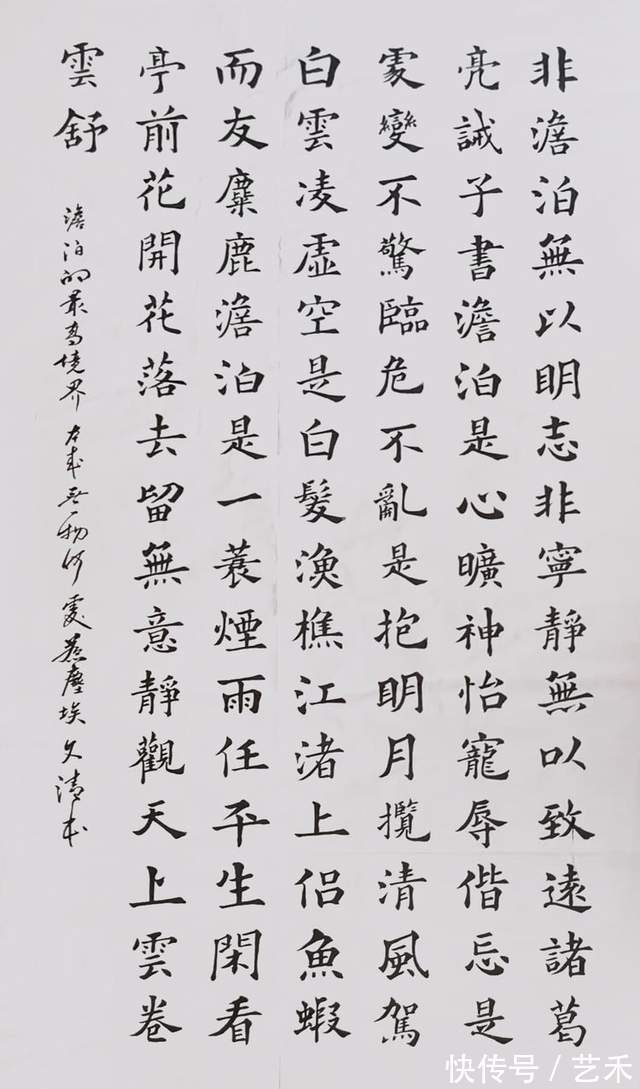 非澹泊無以明志非寧靜無以致遠諸葛
亮誡子書澹泊是心曠神怡寵辱偕忘是
處變不驚臨危不亂是抱明月攬清風駕
白雲凌虛空是白髮漁樵江渚上侶魚蝦
而友麋鹿澹泊是一蓑煙雨任平生閑看
亭前花開花落去留無意靜觀天上雲卷
雲舒
澹泊的最高境界 本来无一物何處惹塵埃 清
快传号／艺禾